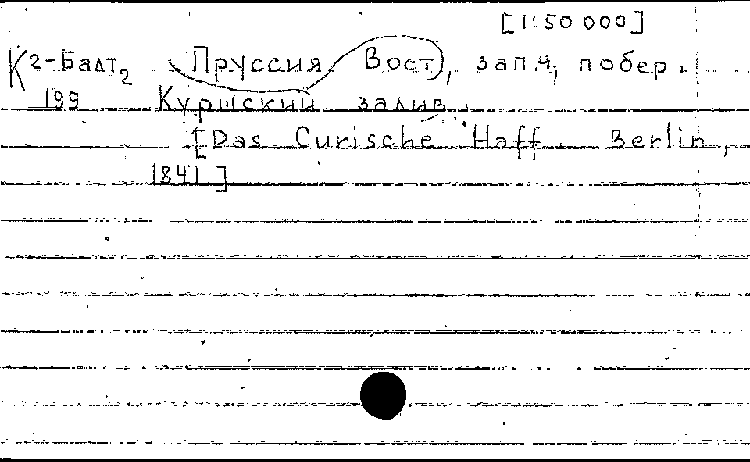 [1:50 000]
К2-Балт2 Пруссия Вост), зап.ч, побер.
199 Куршский залив.
[Das Curische Haff. Berlin,
1841]